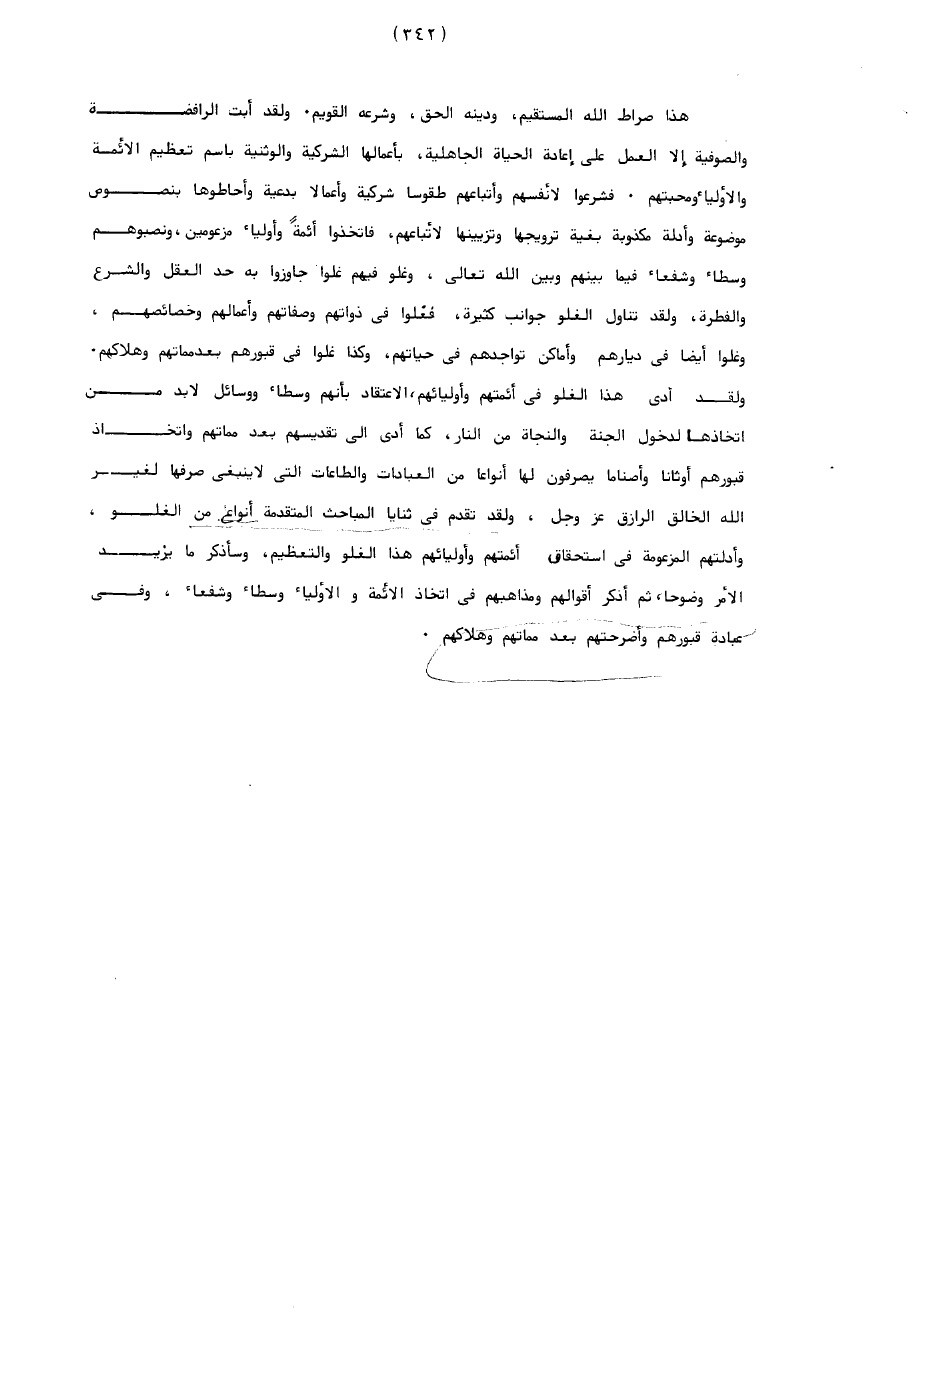 (٣٤٢)
هذا صراط الله المستقيم، ودينه الحق، وشرعه القويم. ولقد أبت الرافضة
والصوفية إلا العمل على إعادة الحياة الجاهلية، بأعمالها الشركية والوثنية باسم تعظيم الأئمة
والأولياء ومحبتهم . فشرعوا لأنفسهم وأتباعهم طقوسا شركية وأعمالا بدعية وأحاطوها بنصوص
موضوعة وأدلة مكذوبة بغية ترويجها وتزيينها لأتباعهم، فاتخذوا أئمةً وأولياء مزعومين، ونصبوهم
وسطاء وشفعاء فيما بينهم وبين الله تعالى ، وغلو فيهم غلوا جاوزوا به حد العقل والشرع
والفطرة، ولقد تناول الغلو جوانب كثيرة، فغلوا فى ذواتهم وصفاتهم وأعمالهم وخصائصهم ،
وغلوا أيضا فى ديارهم وأماكن تواجدهم فى حياتهم، وكذا غلوا فى قبورهم بعدمماتهم وهلاكهم.
ولقد أدى هذا الغلو فى أئمتهم وأوليائهم، الاعتقاد بأنهم وسطاء ووسائل لابد من
اتخاذها لدخول الجنة والنجاة من النار، كما أدى الى تقديسهم بعد مماتهم واتخاذ
قبورهم أوثانا وأصناما يصرفون لها أنواعا من العبادات والطاعات التى لاينبغى صرفها لغير
الله الخالق الرازق عز وجل ، ولقد تقدم فى ثنايا المباحث المتقدمة أنواع من الغلو ،
وأدلتهم المزعومة فى استحقاق أئمتهم وأوليائهم هذا الغلو والتعظيم، وسأذكر ما يزيد
الأمر وضوحا، ثم أذكر أقوالهم ومذاهبهم فى اتخاذ الأئمة و الأولياء وسطاء وشفعاء ، وفى
عبادة قبورهم وأضرحتهم بعد مماتهم وهلاكهم .